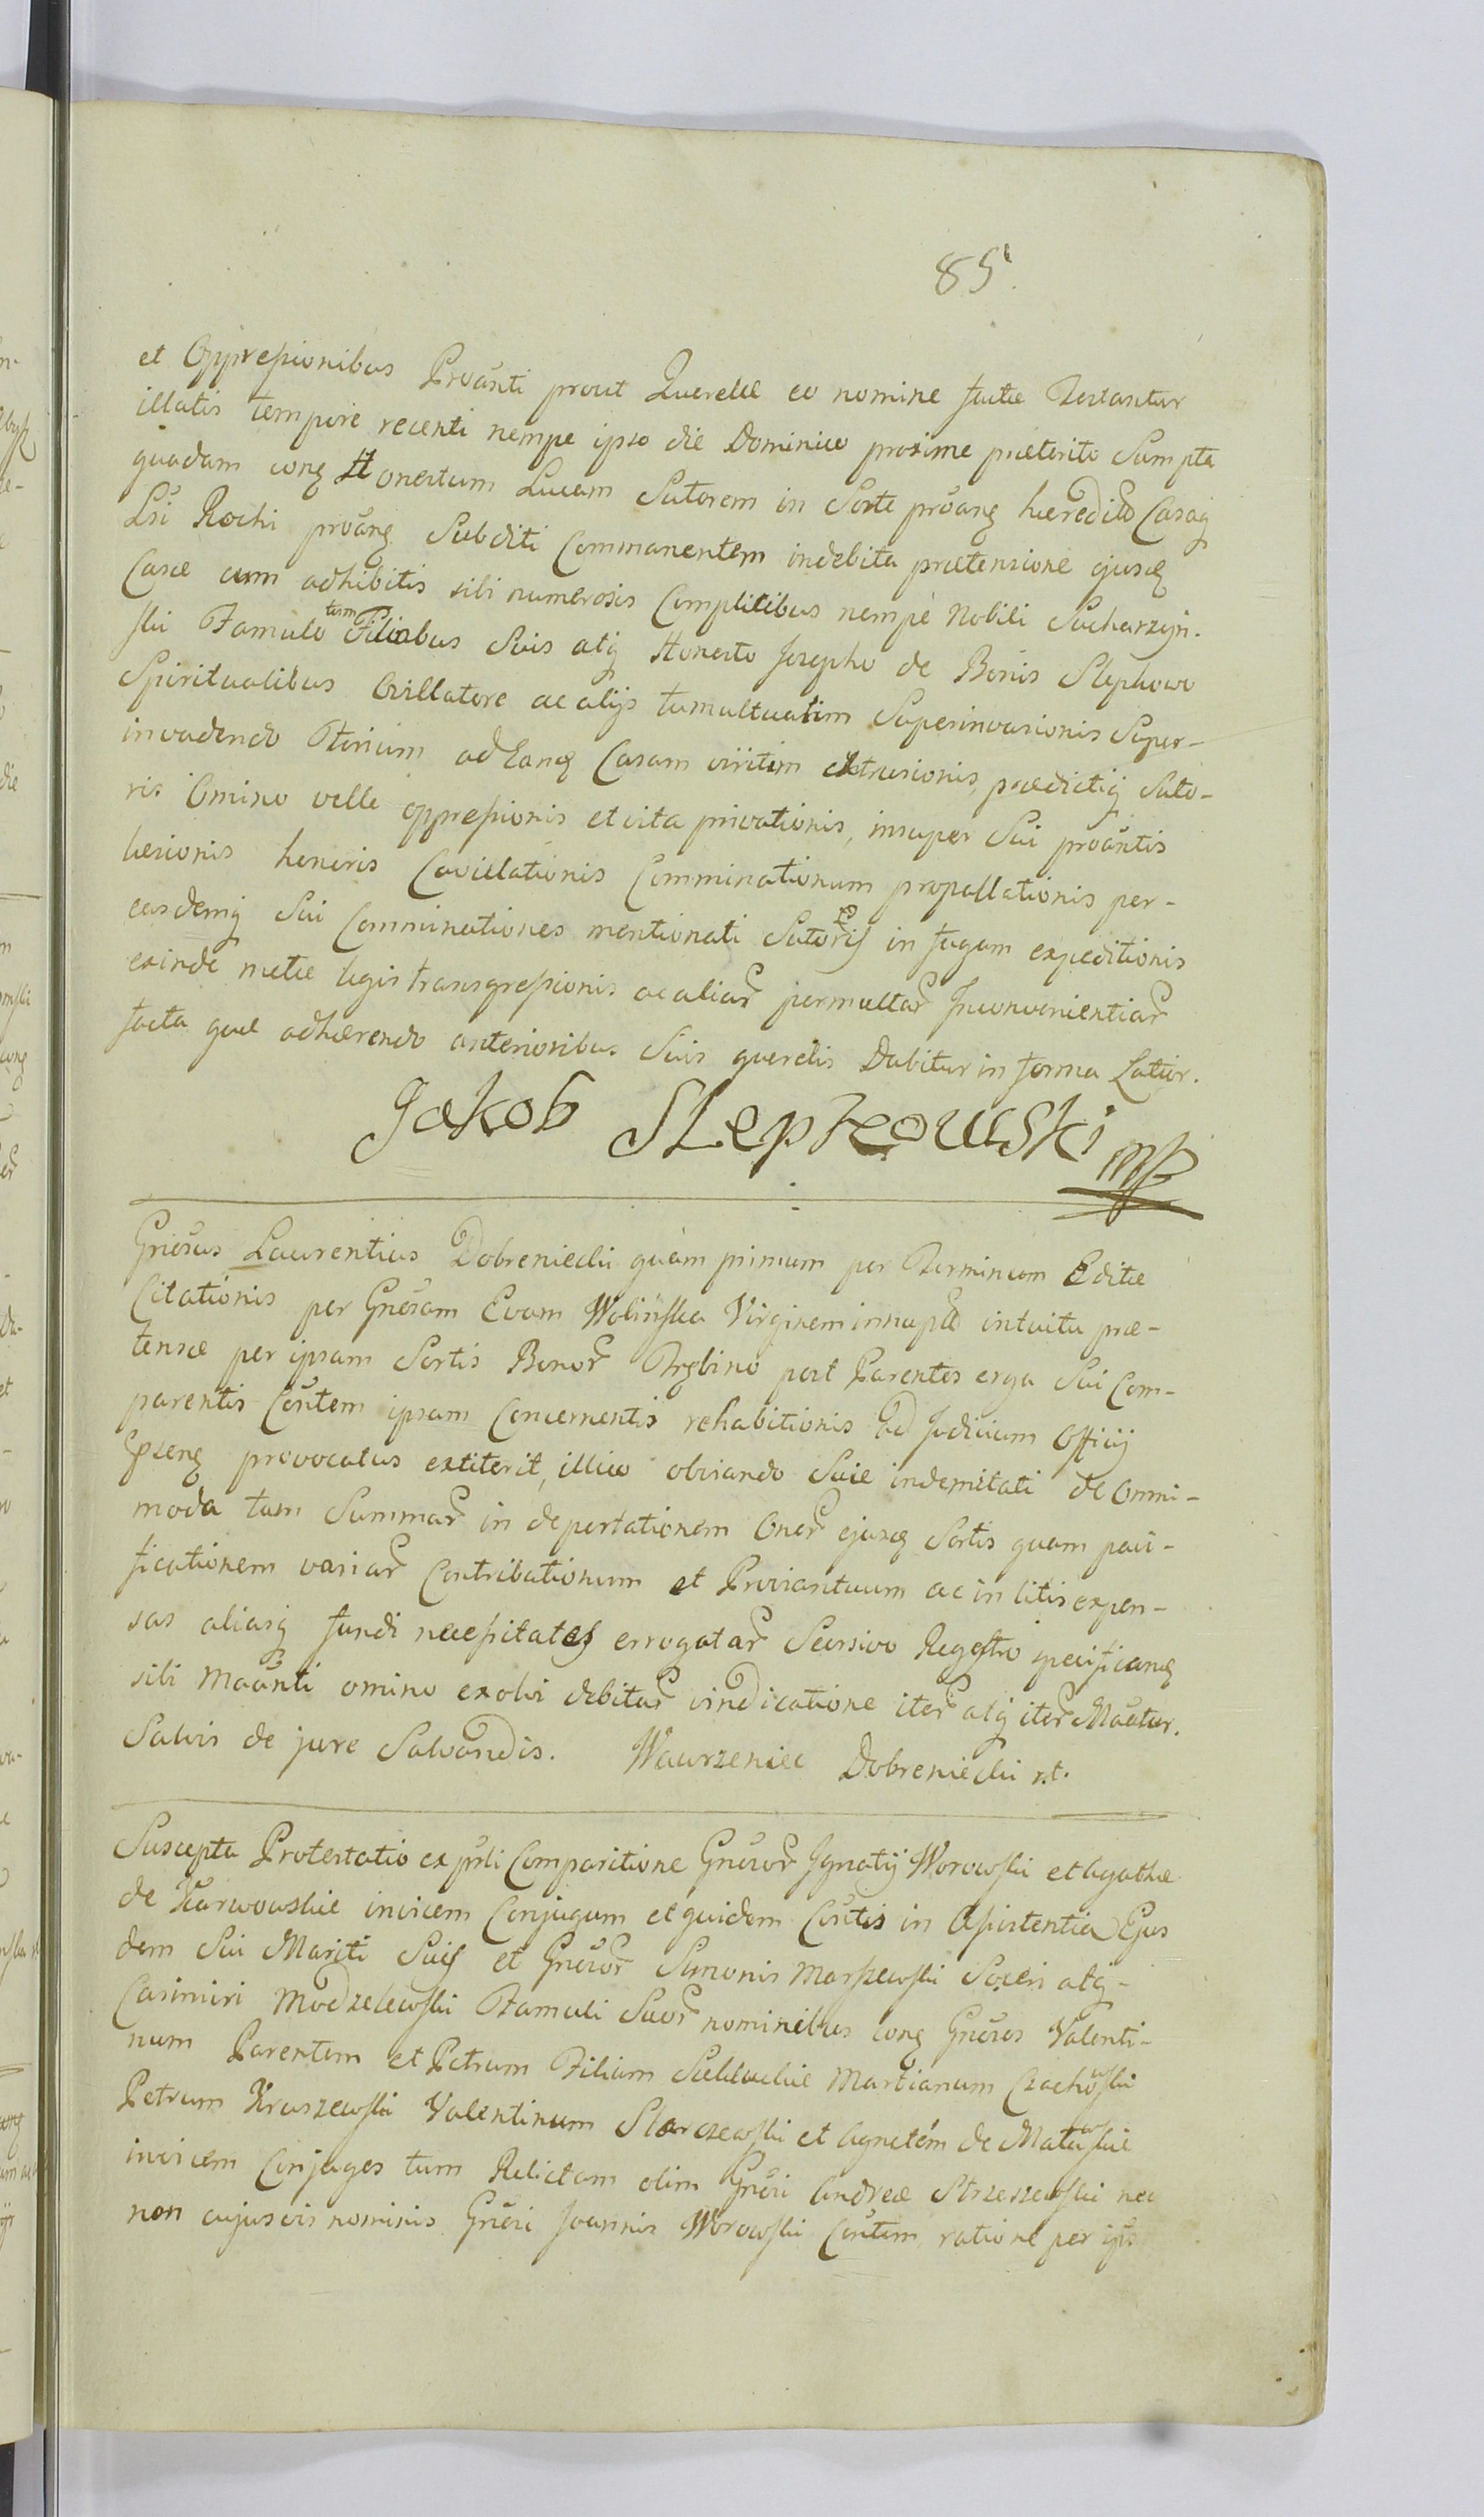 85.
et Oppressionibus Proanti prout Querelæ eo nomine factæ Testantur
illatis tempore recenti nempe ipso die Dominico proxime præterito Sumpta
quadam conq Honestum Lucam Sutorem in Sorte proanq hæredit Casaq
Lsi Rochi proanq Subditi Commanentem indebita prætensione ejusq
Casæ cum adhibitis sibi numerosis Complicibus nempè Nobili Sucharzyn-
ski Famulo tum Filiabus Suis atq Honesto Josepho de Bonis Slepkowo
Spiritualibus Ovillatore ac alijs tumultuatim Superinvasionis Super-
invadendo ad Eanq Casam viritim extrusionis, prædictiq Suto-
ris Omino velle oppressionis et vita privationis, insuper Sui proantis
læsionis honoris Cavillationis Comminationum propallationis per-
easdemq Sui Comminationes mentionati Sutoris in fugam expeditionis
exinde metæ legis transgressionis ac aliar permultar Inconvenientiar
facta quæ adhærendo anterioribus Suis querelis Dabitur in forma Latior.
Jakob SLepkowski mp
Gnosus Laurentius Dobreniecki quàm primum per Terminum Editæ
Citationis per Gnosam Evam Wolinska Virginem innupt intuitu præ-
tensæ per ipsam Sortis Bonor post Parentes erga Sui Com-
parentis Contem ipsam Concernentis rehabitionis ad Judicium Officij
provocatus extiterit, illico obviando Suæ indemitati de Omni-
moda tam Summar in deportationem Oner ejusq Sortis quam paci-
ficationem variar Contributionum et Proviantuum ac in litis expen-
sas aliasq fundi necessitates errogatar Seorsivo Regestro specificanq
sibi Maanti omino exolvi debitar vindicatione iter atq iter Maatur.
Salvis de jure Salvandis. Wawrzeniec Dobreniecki r.t.
Suscepta Protestatio ex prli Comparitione Gnosor Ignatij Worowski et Agathæ
de Karwowskie invicem Conjugum et quidem Contis in Assistentia Ejus
dem Sui Mariti Suis et Gnosor Simonis Marszewski Soceri atq-
Casimiri Modzelewski Famuli Suor nominibus conq Gnosos Valenti-
num Parentem et Petrum Filium Martianum Czachowski
Petrum Kraszewski Valentinum Slarczewski et Agnetem de Matuwskie
invicem Conjuges tum Relictam olim Gnosi Andreæ Strzeszewski nec
non cujusvis nominis Gnosi Joannis Worowski Contem, ratione per ips